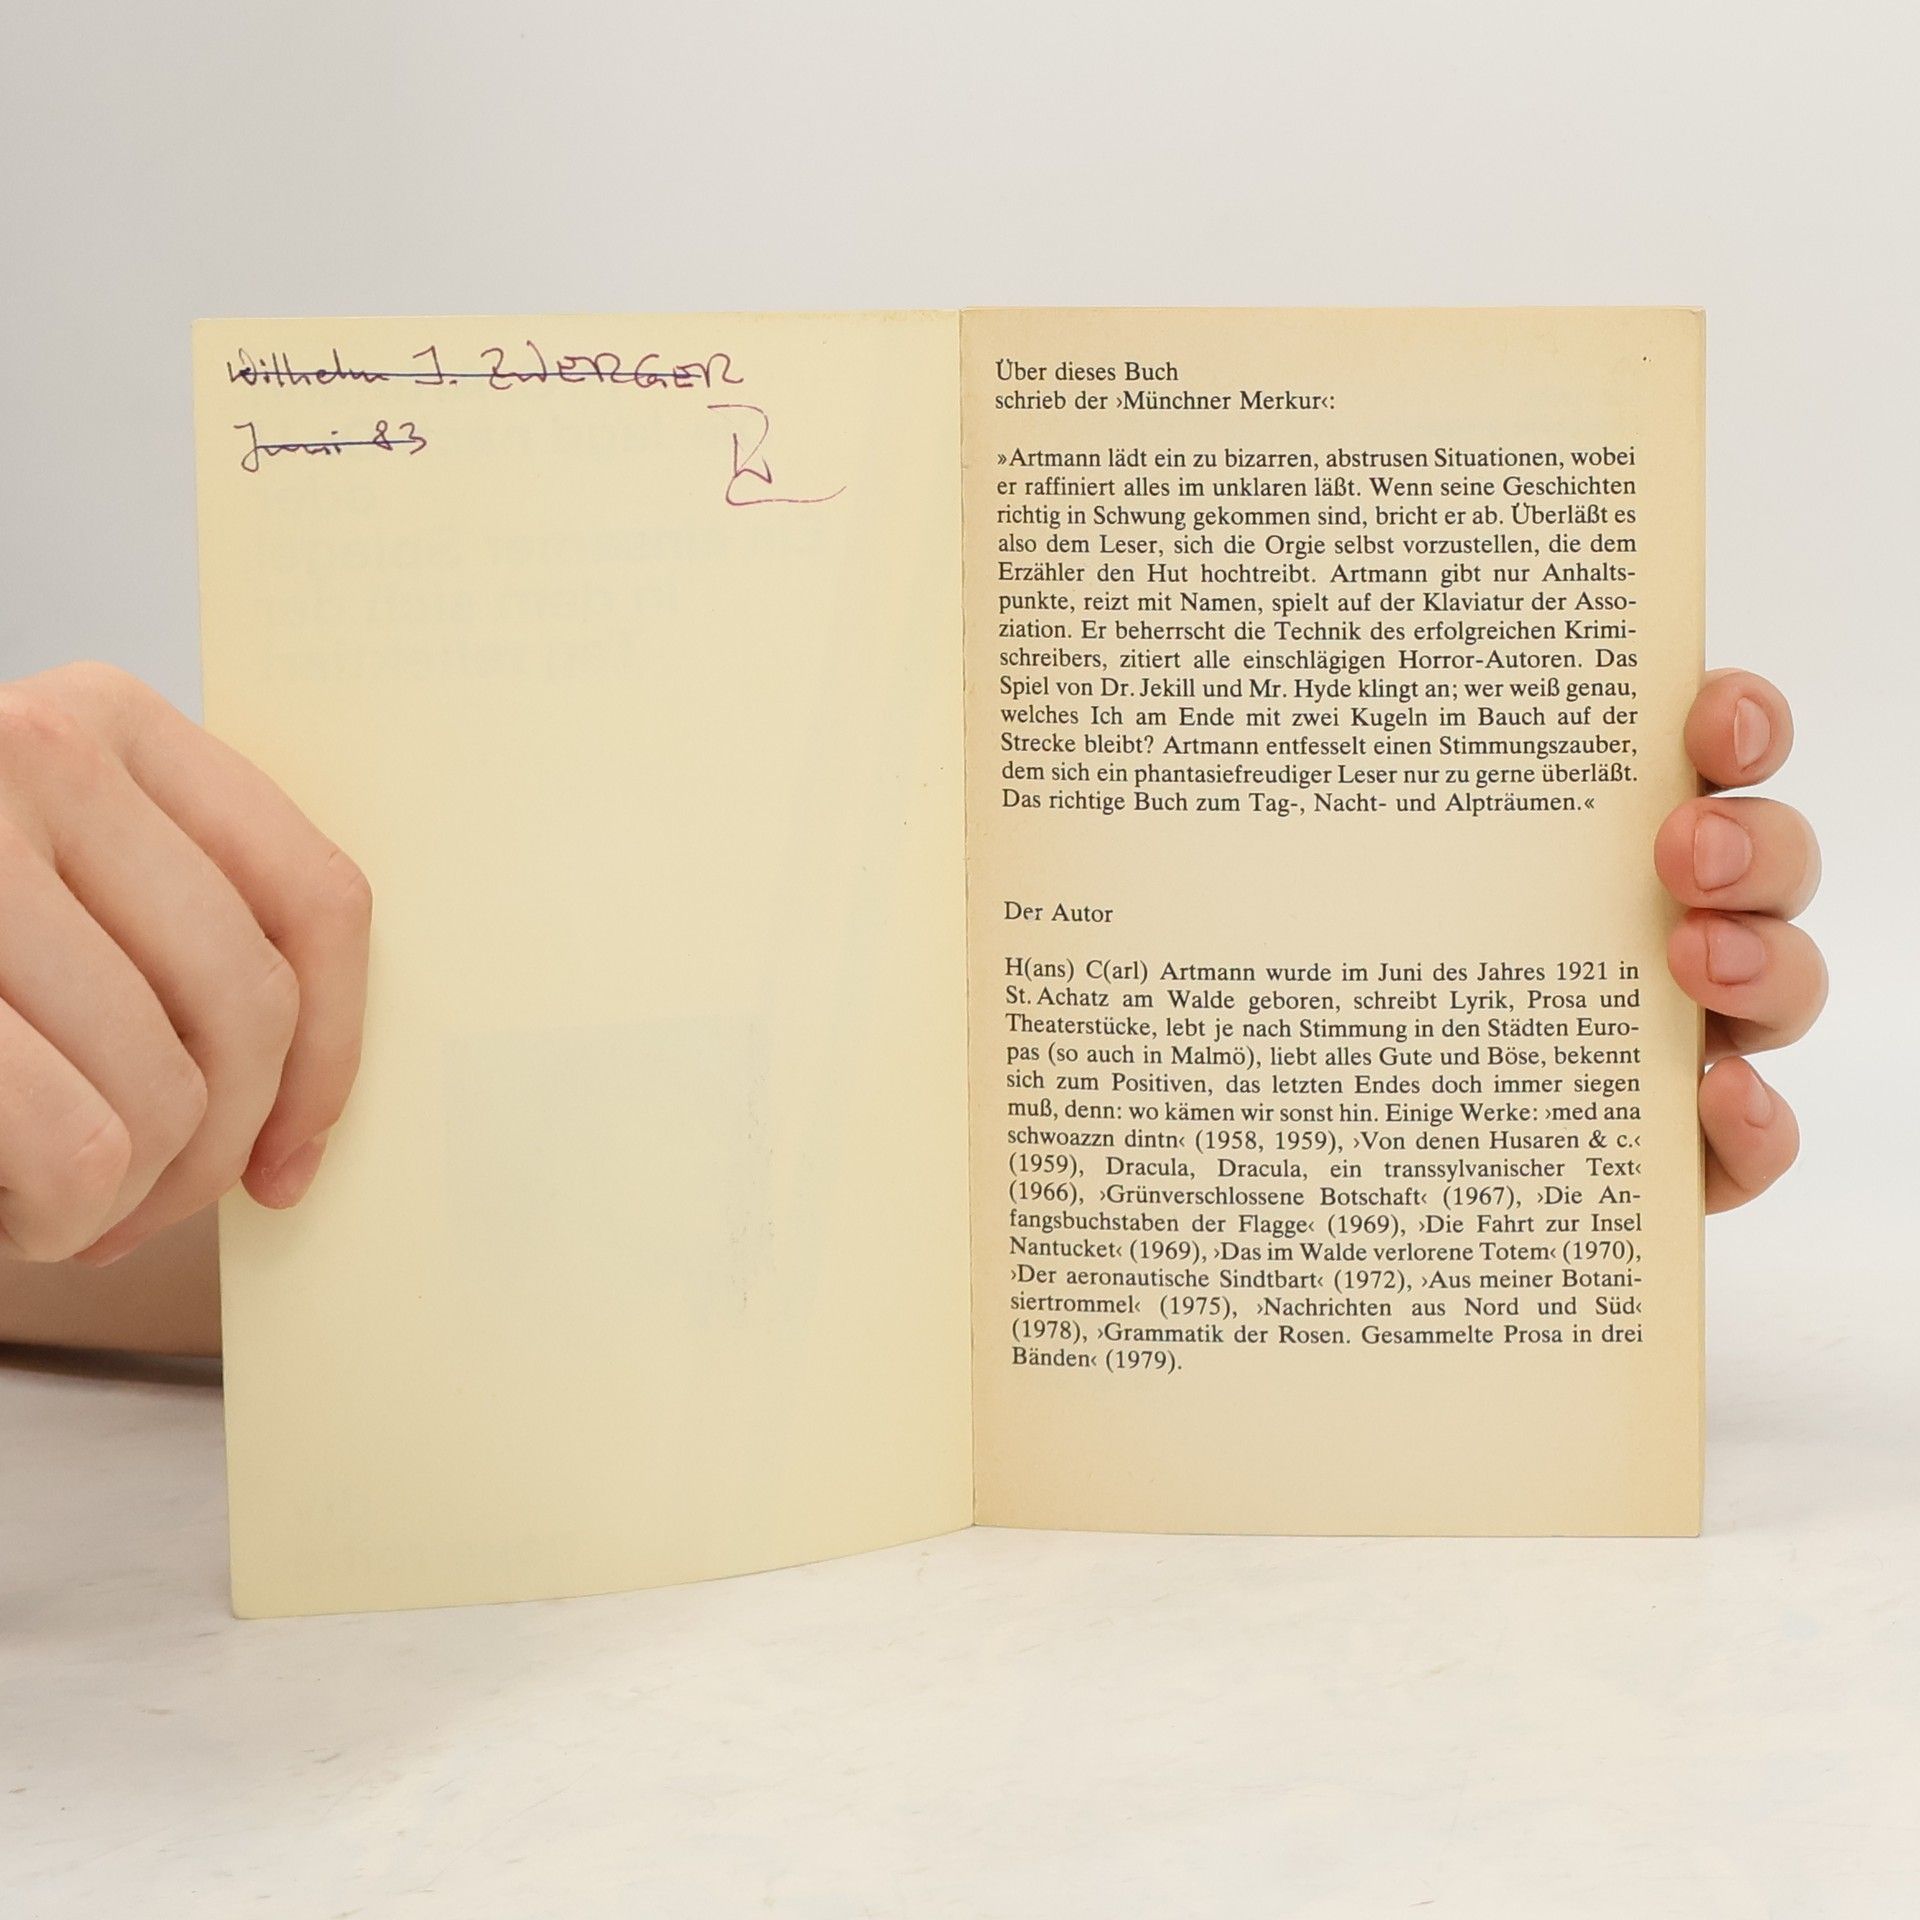 Wilhelm J. ZWERGER
Juni 83
Über dieses Buch
schrieb der ›Münchner Merkur‹:
»Artmann lädt ein zu bizarren, abstrusen Situationen, wobei
er raffiniert alles im unklaren läßt. Wenn seine Geschichten
richtig in Schwung gekommen sind, bricht er ab. Überläßt es
also dem Leser, sich die Orgie selbst vorzustellen, die dem
Erzähler den Hut hochtreibt. Artmann gibt nur Anhalts-
punkte, reizt mit Namen, spielt auf der Klaviatur der Asso-
ziation. Er beherrscht die Technik des erfolgreichen Krimi-
schreibers, zitiert alle einschlägigen Horror-Autoren. Das
Spiel von Dr. Jekill und Mr. Hyde klingt an; wer weiß genau,
welches Ich am Ende mit zwei Kugeln im Bauch auf der
Strecke bleibt? Artmann entfesselt einen Stimmungszauber,
dem sich ein phantasiefreudiger Leser nur zu gerne überläßt.
Das richtige Buch zum Tag-, Nacht- und Alpträumen.«
Der Autor
H(ans) C(arl) Artmann wurde im Juni des Jahres 1921 in
St. Achatz am Walde geboren, schreibt Lyrik, Prosa und
Theaterstücke, lebt je nach Stimmung in den Städten Euro-
pas (so auch in Malmö), liebt alles Gute und Böse, bekennt
sich zum Positiven, das letzten Endes doch immer siegen
muß, denn: wo kämen wir sonst hin. Einige Werke: ›med ana
schwoazzn dintn‹ (1958, 1959), ›Von denen Husaren & c.‹
(1959), Dracula, Dracula, ein transsylvanischer Text‹
(1966), ›Grünverschlossene Botschaft‹ (1967), ›Die An-
fangsbuchstaben der Flagge‹ (1969), ›Die Fahrt zur Insel
Nantucket‹ (1969), ›Das im Walde verlorene Totem‹ (1970),
›Der aeronautische Sindtbart‹ (1972), ›Aus meiner Botani-
siertrommel‹ (1975), ›Nachrichten aus Nord und Süd‹
(1978), ›Grammatik der Rosen. Gesammelte Prosa in drei
Bänden‹ (1979).